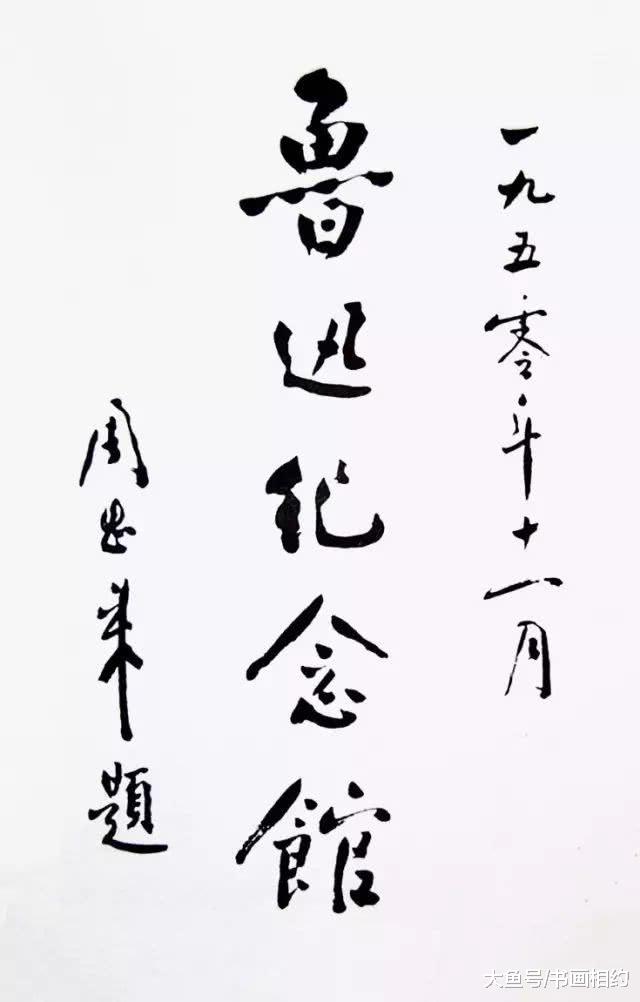 一九五零年十一月
魯迅纪念館
周恩来題
大鱼号/书画相约